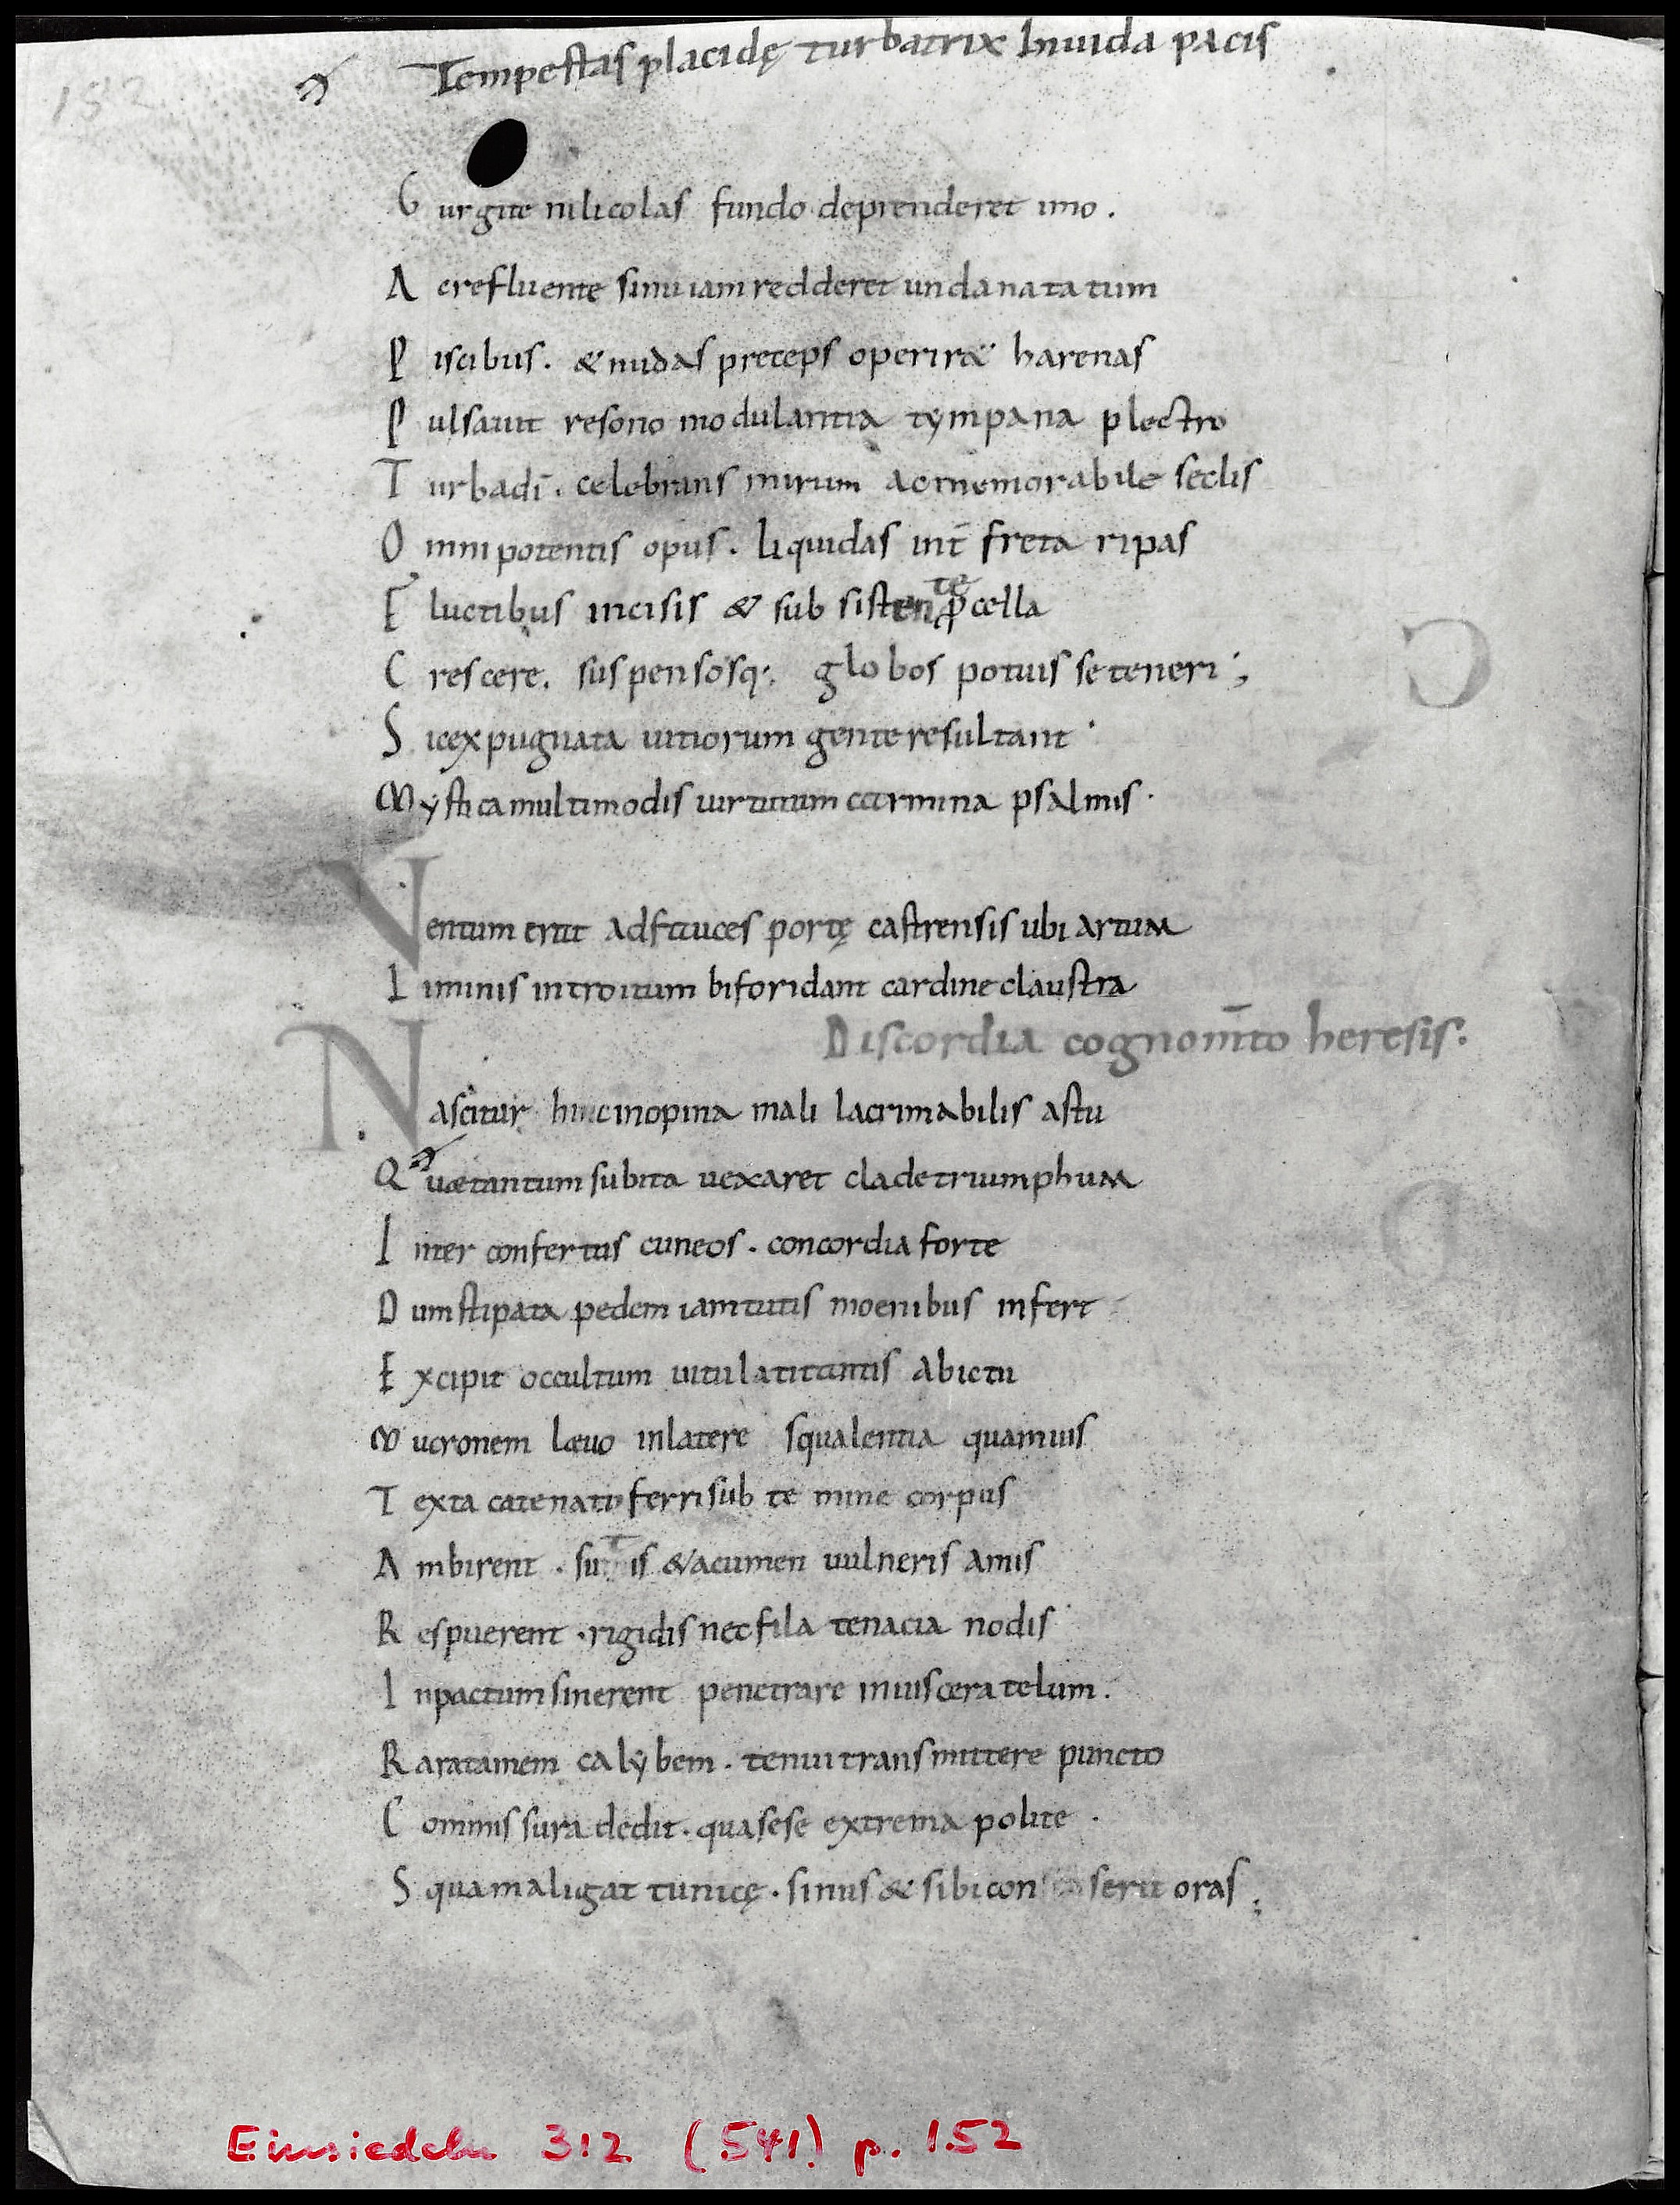 152
Tempestas placidę turbatrix Inuida pacis
Gurgite nilicolas fundo deprenderet imo.
Ac refluente sinu iam redderet unda natatum
Piscibus. & nudas preceps operiret harenas
Pulsauit resono modulantia tympana plectro
Turba dī. celebrans mirum ac memorabile seclis
Omnipotentis opus. liquidas int̄ freta ripas
Fluctibus incisis & subsistente ꝓcella
Crescere. suspensosq; globos potuisse teneri;
Sic expugnata uitiorum gente resultant
Mystica multimodis uirtutum carmina psalmis.
Ventum erat ad fauces portę castrensis ubi artum
Liminis introitum bifori dant cardine claustra
Discordia cognom̄to heresis.
Nascitur hinc inopina mali lacrimabilis astu
Quae tantum subita uexaret clade triumphum
Inter confertus cuneos. concordia forte
Dum stipata pedem iam tutis moenibus infert
Excipit occultum uitii latitantis ab ictu
Mucronem laeuo in latere squalentia quamuis
Texta catenato ferri subtemine corpus
Ambirent. sutis & acumen uulneris amis
Respuerent. rigidis nec fila tenacia nodis
Inpactum sinerent penetrare in uiscera telum.
Rara tamen calybem. tenui transmittere puncto
Commissura dedit. qua sese extrema polite.
Squama ligat tunicę. sinus & sibi conserit oras;
Einsiedeln 312 (541) p. 152